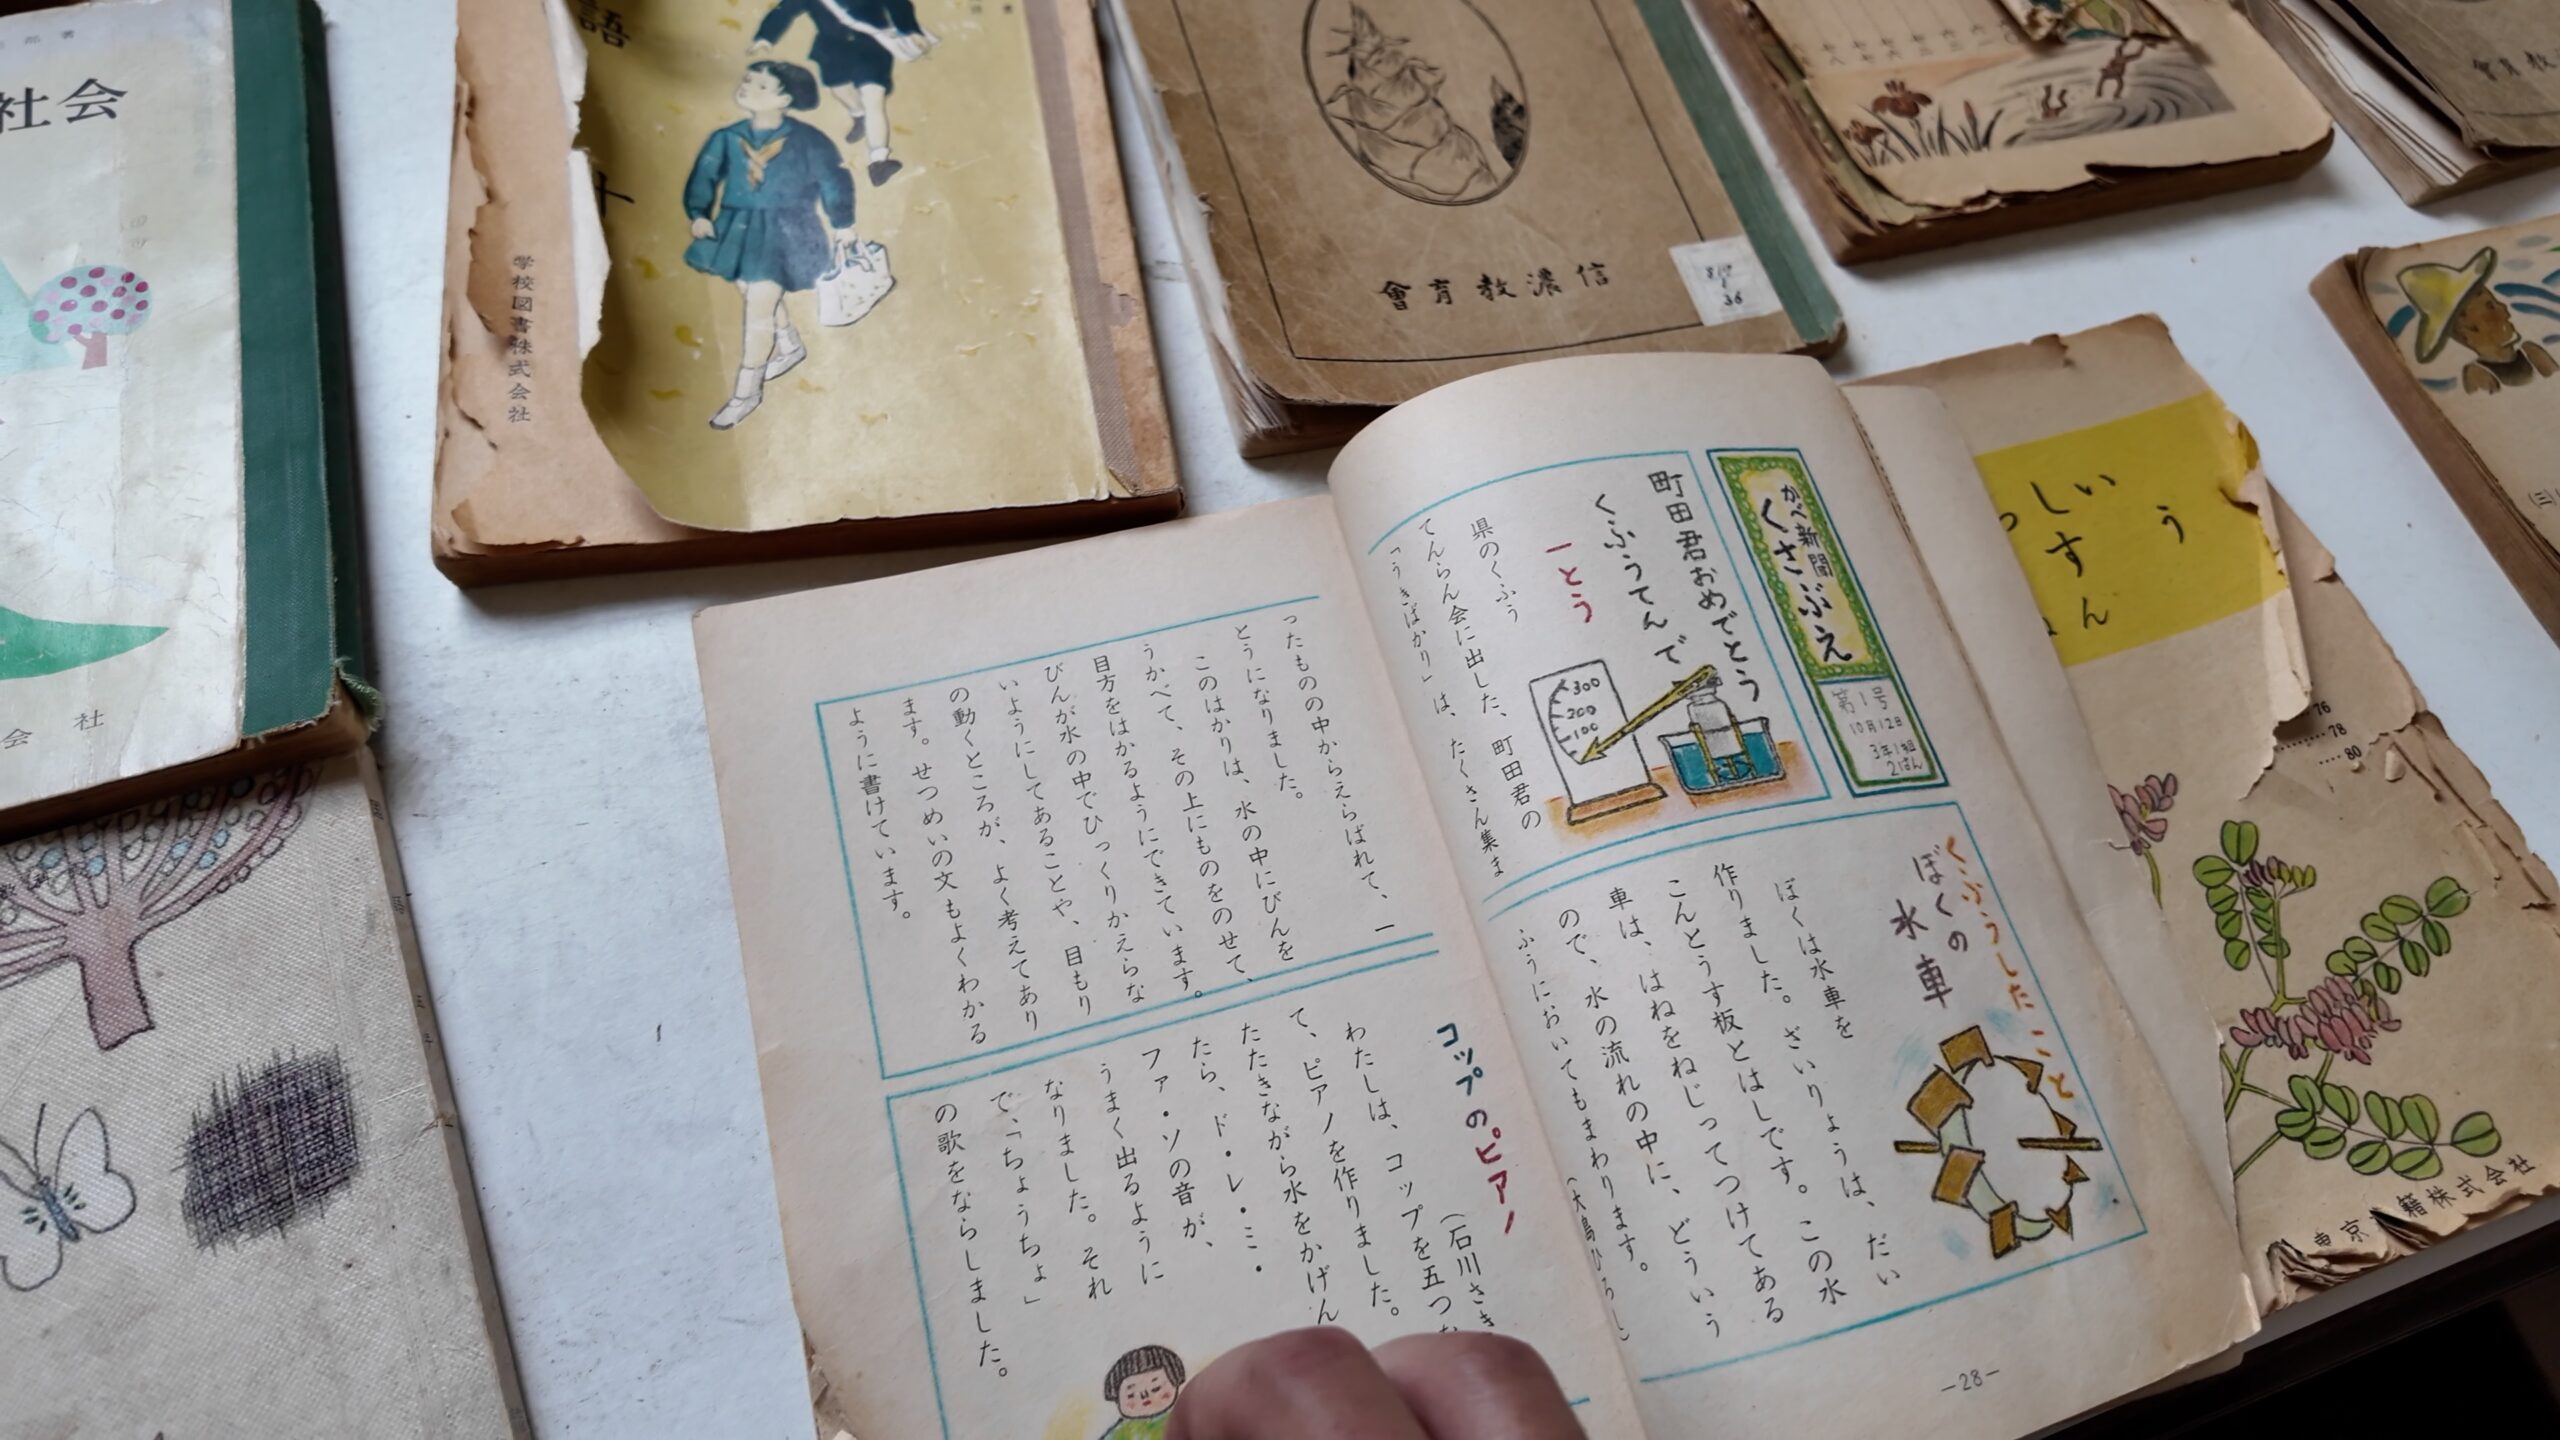 社会
会社
語
学校図書株式会社
信濃教育會
819
1
36
かべ新聞
くさぶえ
第1号
10月12日
3年1組
2はん
町田君おめでとう
くふうてんで
一とう
300
200
100
県のくふう
てんらん会に出した、町田君の
「うきばかり」は、たくさん集ま
ったものの中からえらばれて、一
とうになりました。
このはかりは、水の中にびんを
うかべて、その上にものをのせて、
目方をはかるようにできています。
びんが水の中でひっくりかえらな
いようにしてあることや、目もり
の動くところが、よく考えてあり
ます。せつめいの文もよくわかる
ように書けています。
くふうしたこと
ぼくの
水車
ぼくは水車を
作りました。ざいりょうは、だい
こんとうす板とはしです。この水
車は、はねをねじってつけてある
ので、水の流れの中に、どういう
ふうにおいてもまわります。
コップのピアノ
（石川さき
わたしは、コップを五つ
て、ピアノを作りました。
たたきながら水をかげん
たら、ド・レ・ミ・
ファ・ソの音が、
うまく出るように
なりました。それ
で、「ちょうちょ」
の歌をならしました。
－28－
76
78
80
京
籍株式会社
（三）